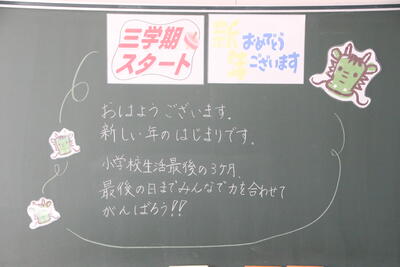 三学期
スタート
新年
おめでとう
ございます
おはようございます.
新しい年のはじまりです.
小学校生活最後の3ケ月.
最後の日までみんなで力を合わせて
がんばろう!!